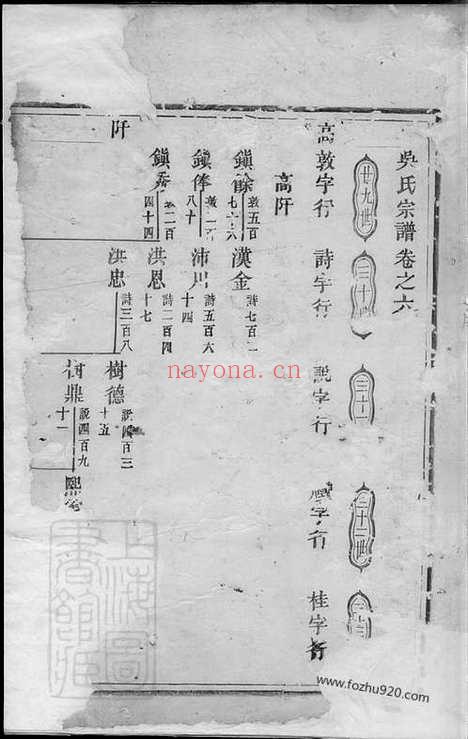 吳氏宗譜卷之六
廿九世 三十 三十一 三十二世
高敦字行 詩字行 説字行 字行 桂字行
高阡
鎮餘 敦五百七十六 漢金 詩七百二
鎮俸 八十 沛川 詩五百六十四
鎮 敦二百四十四 洪恩 詩二百四十七
洪忠 詩三百八
樹德 説 百三十五
樹鼎 説四百九十一 熙
阡
上海圖書館藏
nayona.cn
www.fozhu920.com